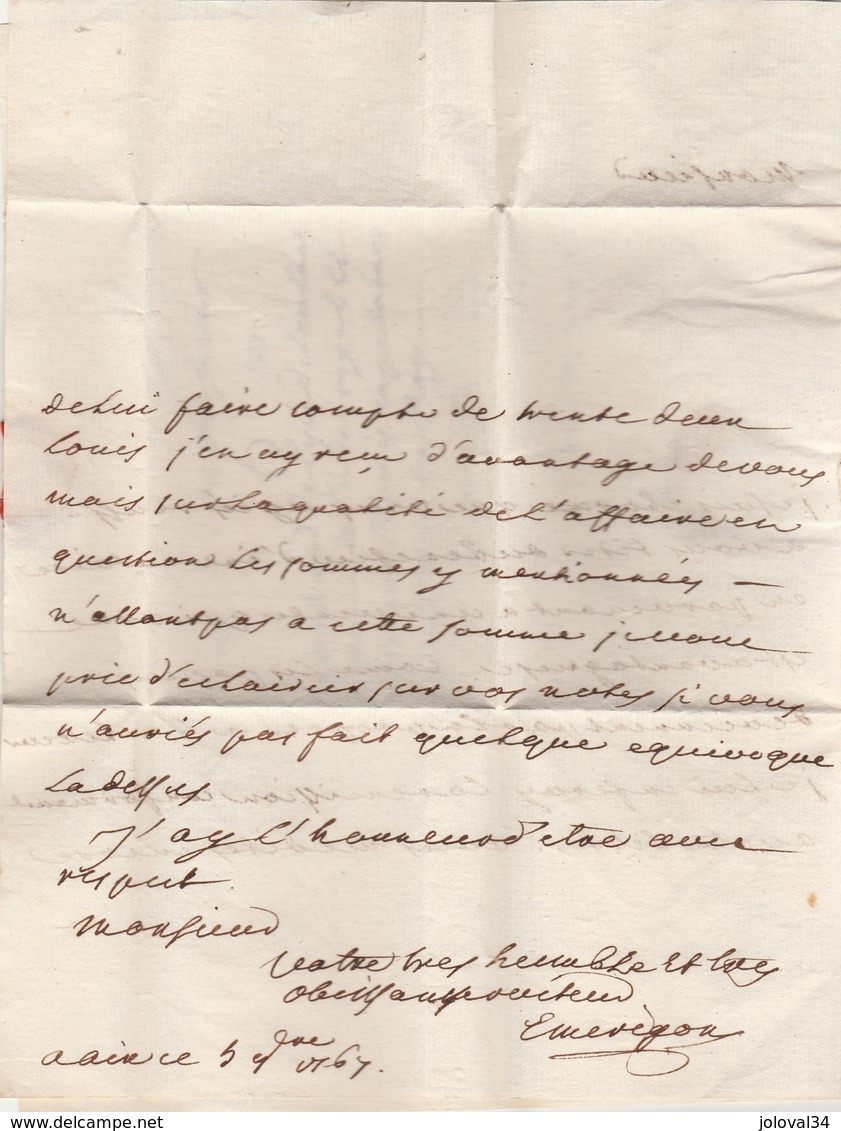 de lui faire compte de trente deux
louis j'en ay reçu d'avantage de vous
mais sur la qualité de l'affaire en
question les sommes y mentionnées —
n'allant pas a cette somme je vous
prie d'eclaircir sur vos notes si vous
n'auriés pas fait quelque equivoque
la dessus
j'ay l'honneur d'etre avec
respect
monsieur
votre tres humble et tres
obeissant serviteur
Emerigon
a aix ce 5
joloval34